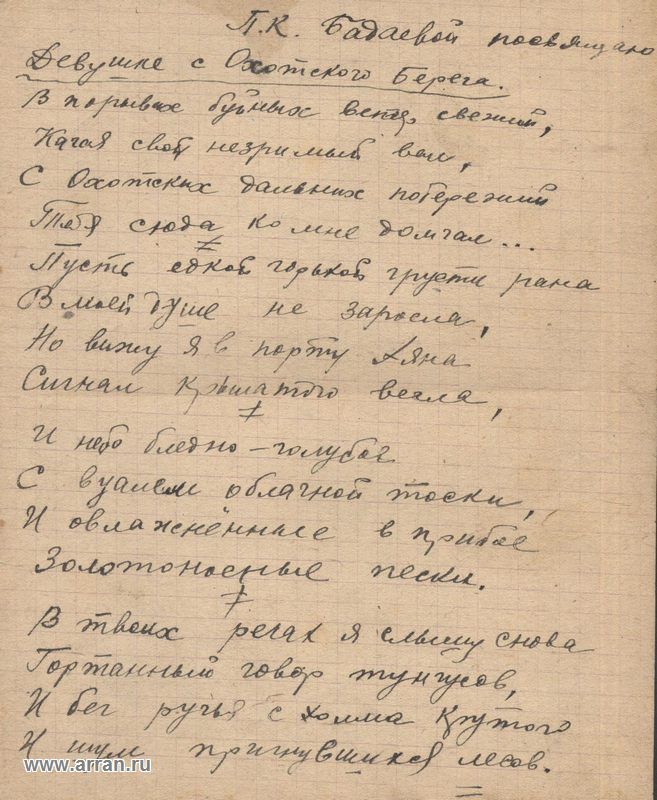 П.К. Бадаевой посвящаю
Девушке с Охотского Берега.
В порывах буйных ветер свежий,
Качая свой незримый вал,
С Охотских дальних побережий
Тебя сюда ко мне домчал...
Пусть едкой горькой грусти рана
В моей душе не заросла,
Но вижу я в порту Аяна
Сигнал крылатого весла,
И небо бледно-голубое
С вуалем облачной тоски,
И овлажнённые в прибое
Золотоносные пески.
В твоих речах я слышу снова
Гортанный говор тунгусов,
И бег ручья с холма крутого
И шум пригнувшихся лесов.
www.arran.ru